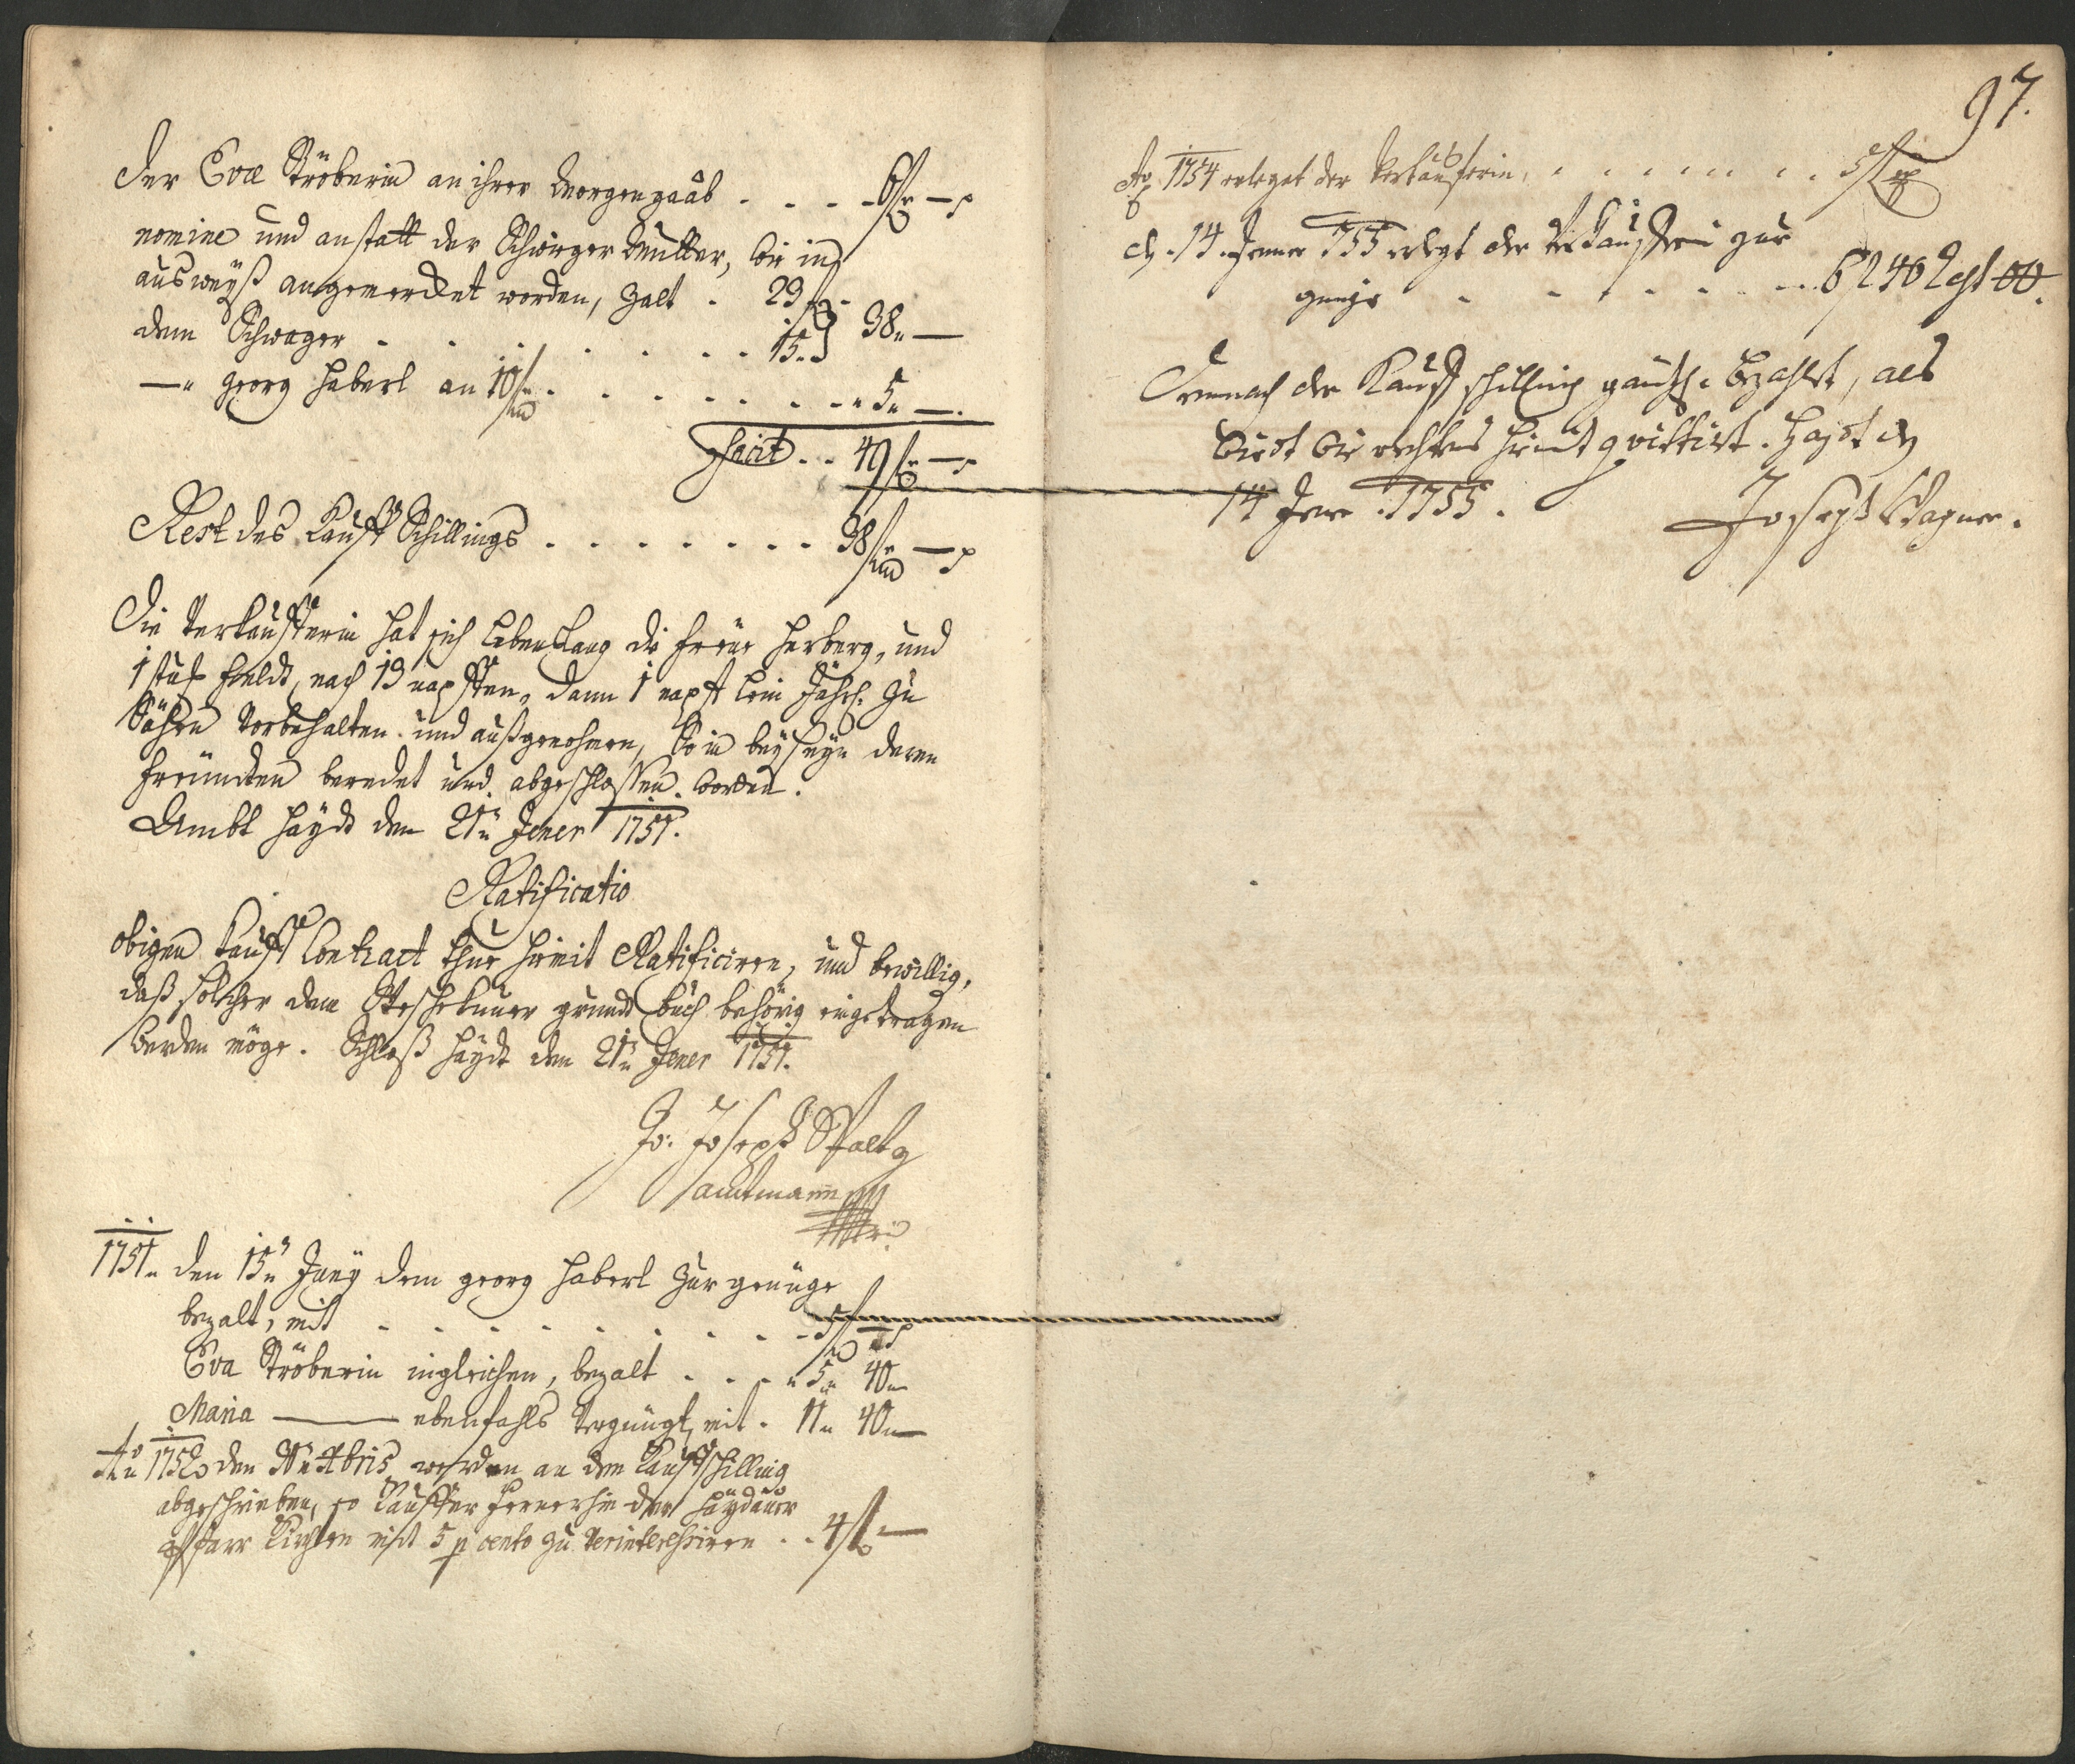 Der Evæ Ströberin an ihrer Morgengaab . . . . 6 f —
nomine und anstatt der Schwiger Mutter, wie in
ausweyß angemerckt worden, zalt . 23 f
dem Schwager . . . . . . . 15. } 38 —
— Georg Haberl an 10 f . . . . . . . . 5 —
facit . . 49 f —
Rest des Kauff Schillings . . . . . . . . 38 f —
Die Verkaufferin hat sich Lebenslang die freue Herberg, und
1 stuck feldt, nach 13 napffen, dann 1 napft Lein Jährl. zu
Sähen Vorbehalten und außgenohmen, So in beyseyn deren
freündten beredet und abgeschlossen worden.
Ambt Haydt den 21 Jener 1751.
Ratificatio
obigen Kauff Contract thue hiemit Ratificiren, und bewillig,
daß solcher dem grundt buch behörig eingetragen
werden möge. Schloß Haydt den 21 Jener 1751.
Jo: Joseph
1751 den 15 Juny dem georg Haberl zur genüge
bezalt, mit . . . . . . . . . 5 f —
Eva Ströberin ingleichen, bezalt . . . . 5 40
Maria —— ebenfahls Vergnügt, mit . 11 40
Ao 1752 den werden an dem Kauffschilling
abgeschrieben, so Kauffer fernerhin der Haydauer
Pfarr Kirchen mit 5 p cento zu Verinteressiren . . 4 f —
97.
Ao 1754 erleget der Verkäuferin . . . . . . . . 5 f
d. 14. Jenner 755 erlegt der Verkaufferin zur
genüge . . . . . . . . 6 f 40
Demnach der Kauff schilling gäntzl. bezahlt, als
wirdt wie rechtens hiemit quittirt. Haydt d
14 Jener 1755. Joseph Wagner.